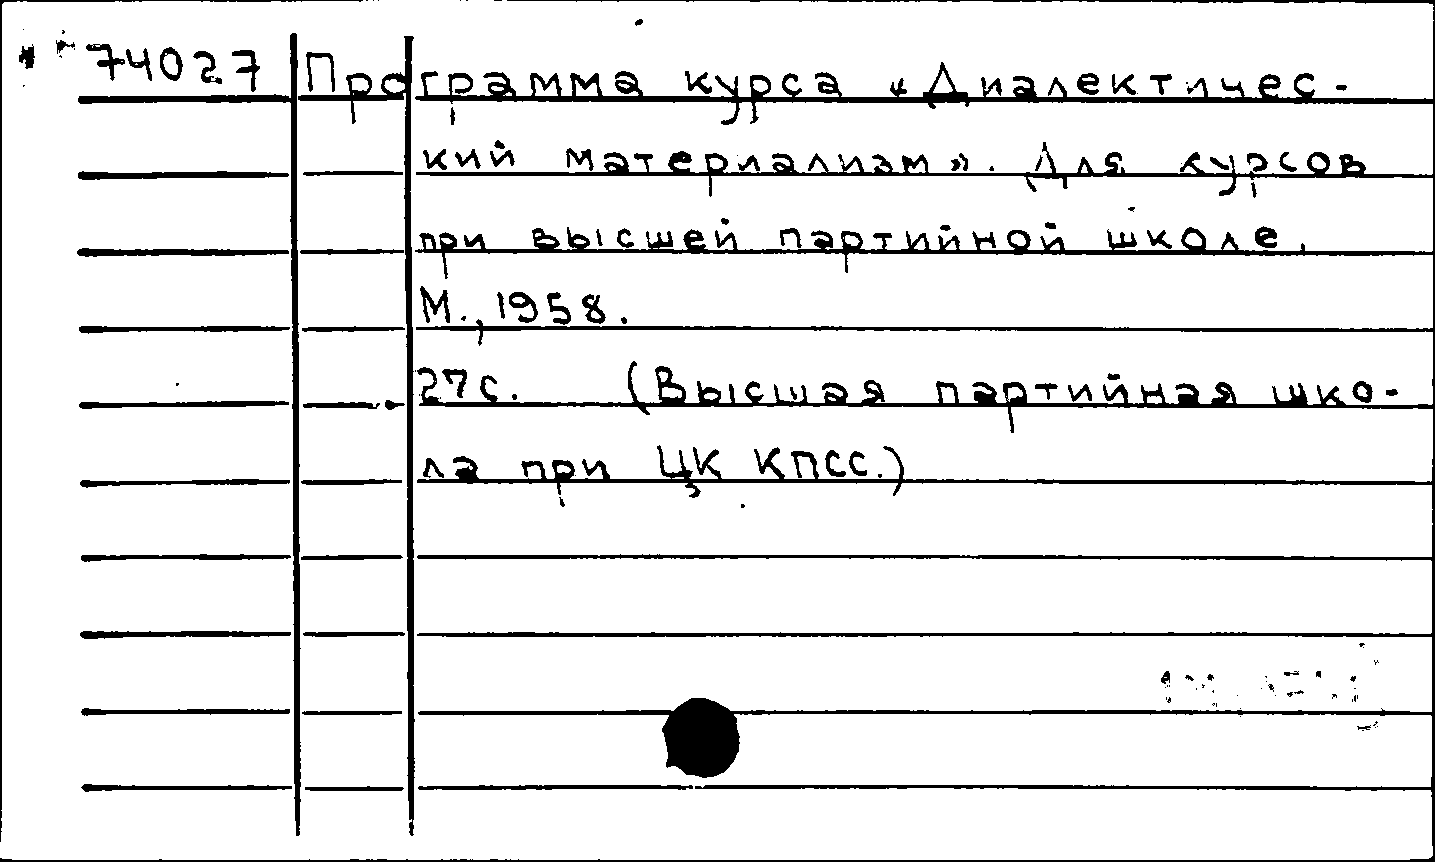 74027 Программа курса «Диалектичес-
кий материализм». Для курсов
при высшей партийной школе.
М., 1958.
27с. (Высшая партийная шко-
ла при ЦК КПСС.)